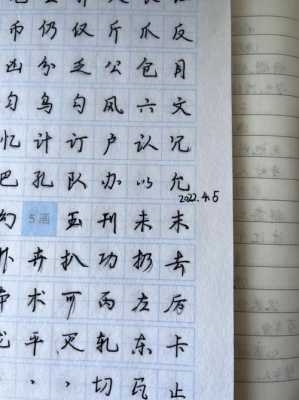 币仍仅斤爪反
凶分乏公仓月
匀乌勾凤六文
忆计订户认冗
巴孔队办以允
2022.4.5
幻5画玉刊未末
卉扒功扔去
术可丙左厉
龙平灭轧东卡
切瓦止